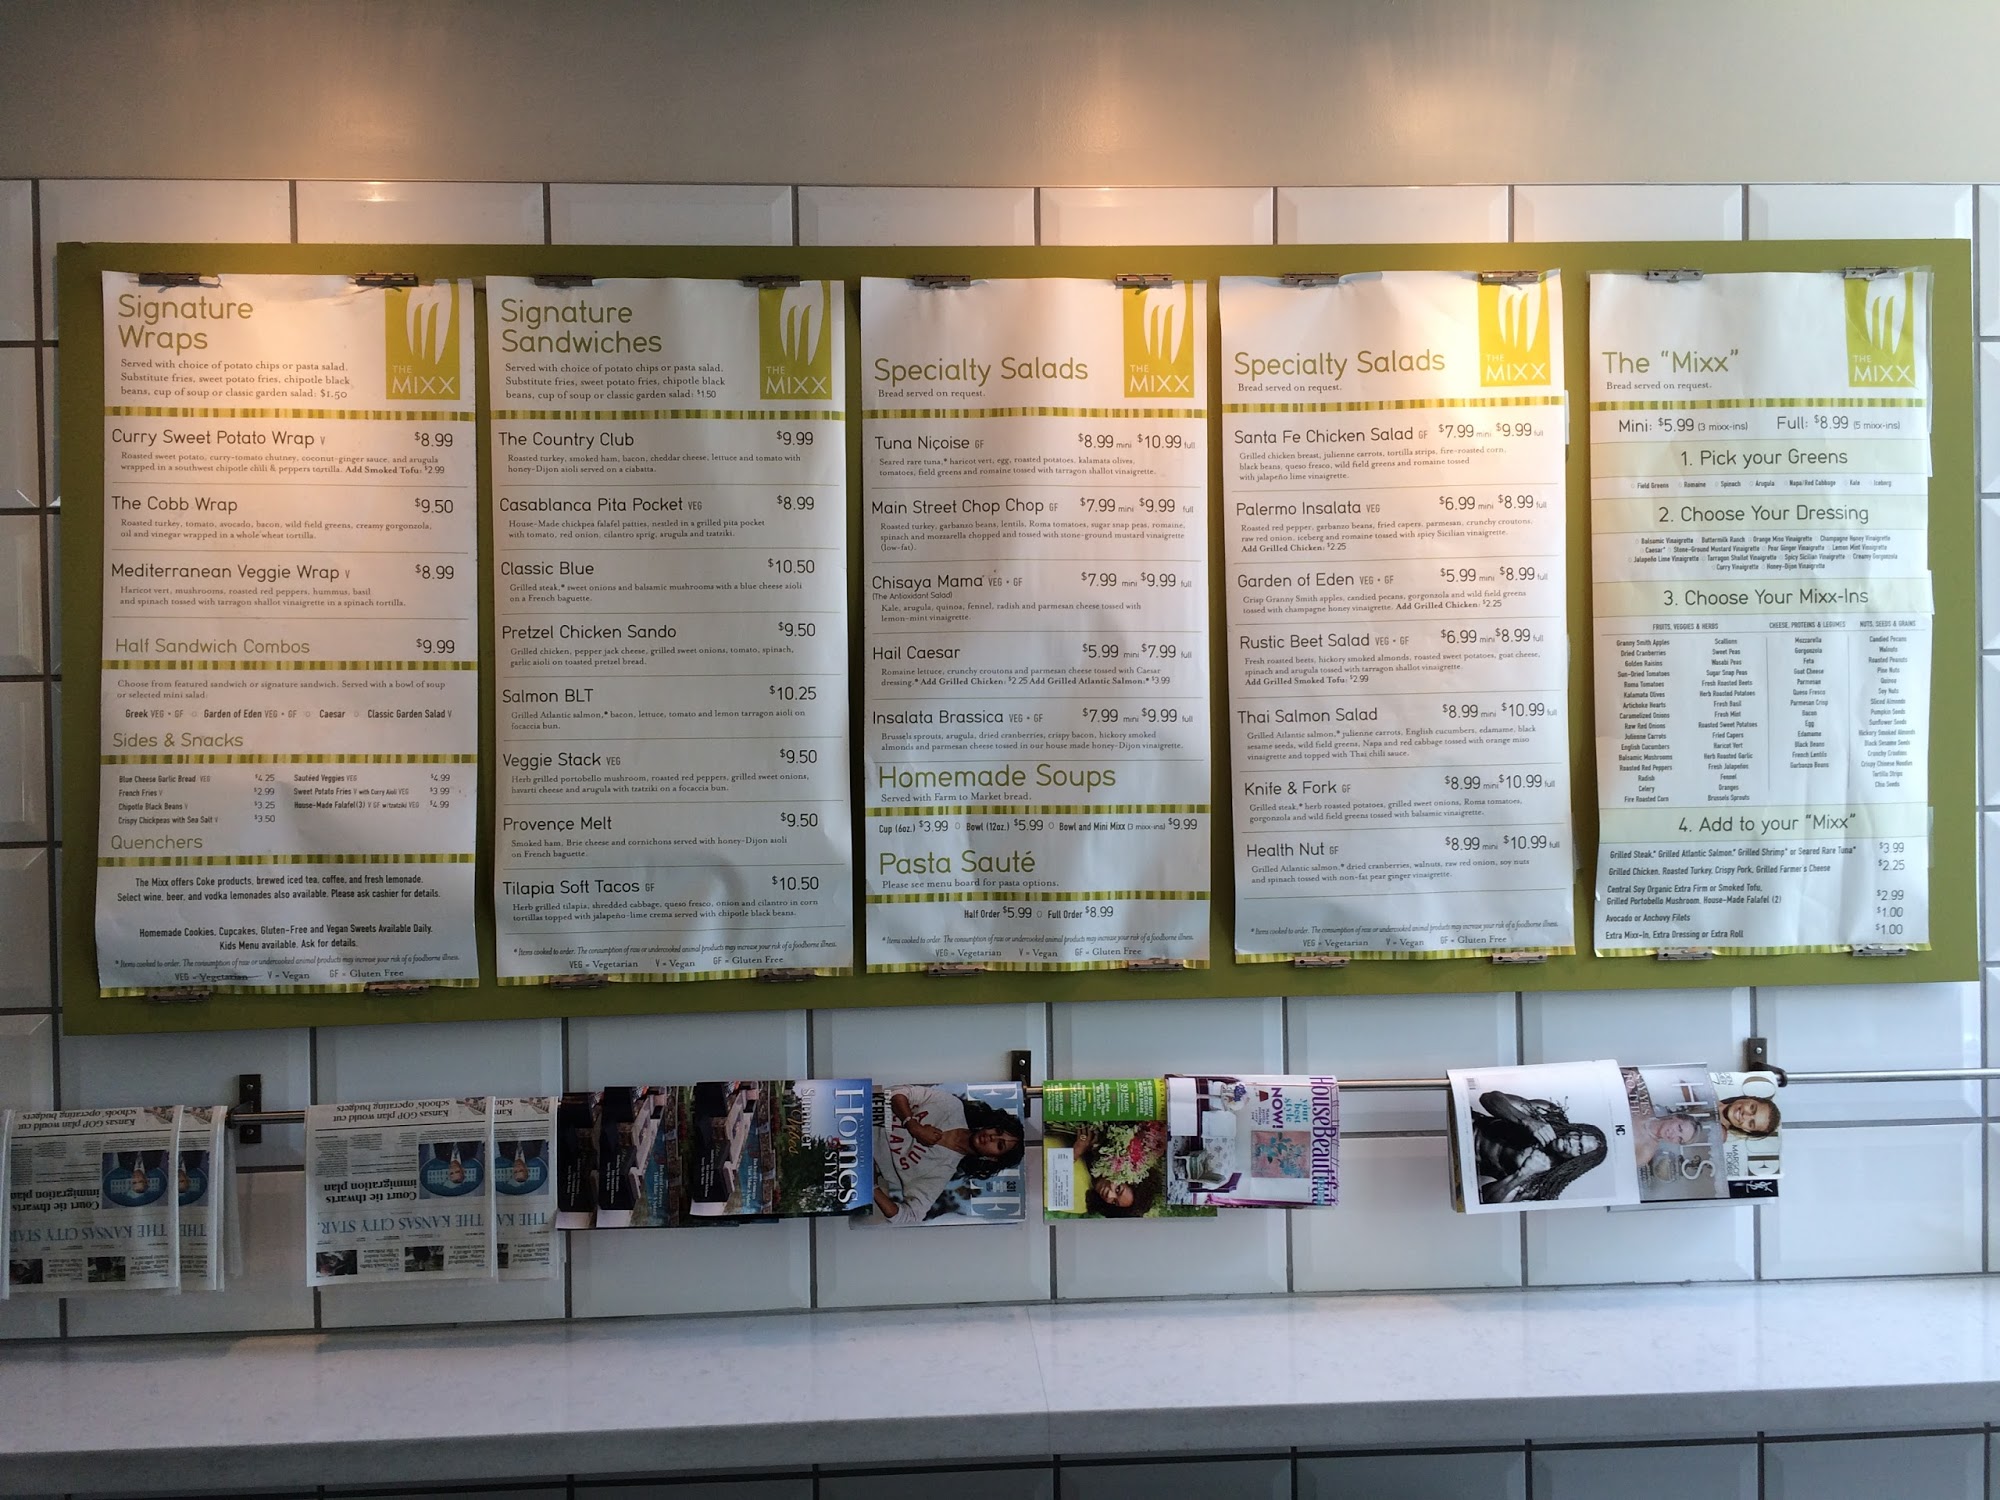 Signature
Wraps
THE
MIXX
Served with choice of potato chips or pasta salad.
Substitute fries, sweet potato fries, chipotle black
beans, cup of soup or classic garden salad: $1.50
Curry Sweet Potato Wrap V $8.99
Roasted sweet potato, curry-tomato chutney, coconut-ginger sauce, and arugula
wrapped in a southwest chipotle chili & peppers tortilla. Add Smoked Tofu: $2.99
The Cobb Wrap $9.50
Roasted turkey, tomato, avocado, bacon, wild field greens, creamy gorgonzola,
oil and vinegar wrapped in a whole wheat tortilla.
Mediterranean Veggie Wrap V $8.99
Haricot vert, mushrooms, roasted red peppers, hummus, basil
and spinach tossed with tarragon shallot vinaigrette in a spinach tortilla.
Half Sandwich Combos $9.99
Choose from featured sandwich or signature sandwich. Served with a bowl of soup
or selected mini salad:
Greek VEG • GF ○ Garden of Eden VEG • GF ○ Caesar ○ Classic Garden Salad V
Sides & Snacks
Blue Cheese Garlic Bread VEG $4.25
French Fries V $2.99
Chipotle Black Beans V $3.25
Crispy Chickpeas with Sea Salt V $3.50
Sautéed Veggies VEG $4.99
Sweet Potato Fries V with Curry Aioli VEG $3.99
House-Made Falafel(3) V GF w/tzatziki VEG $4.99
Quenchers
The Mixx offers Coke products, brewed iced tea, coffee, and fresh lemonade.
Select wine, beer, and vodka lemonades also available. Please ask cashier for details.
Homemade Cookies, Cupcakes, Gluten-Free and Vegan Sweets Available Daily.
Kids Menu available. Ask for details.
* Items cooked to order. The consumption of raw or undercooked animal products may increase your risk of a foodborne illness.
VEG = Vegetarian V = Vegan GF = Gluten Free
Signature
Sandwiches
THE
MIXX
Served with choice of potato chips or pasta salad.
Substitute fries, sweet potato fries, chipotle black
beans, cup of soup or classic garden salad: $1.50
The Country Club $9.99
Roasted turkey, smoked ham, bacon, cheddar cheese, lettuce and tomato with
honey-Dijon aioli served on a ciabatta.
Casablanca Pita Pocket VEG $8.99
House-Made chickpea falafel patties, nestled in a grilled pita pocket
with tomato, red onion, cilantro sprig, arugula and tzatziki.
Classic Blue $10.50
Grilled steak,* sweet onions and balsamic mushrooms with a blue cheese aioli
on a French baguette.
Pretzel Chicken Sando $9.50
Grilled chicken, pepper jack cheese, grilled sweet onions, tomato, spinach,
garlic aioli on toasted pretzel bread.
Salmon BLT $10.25
Grilled Atlantic salmon,* bacon, lettuce, tomato and lemon tarragon aioli on
focaccia bun.
Veggie Stack VEG $9.50
Herb grilled portobello mushroom, roasted red peppers, grilled sweet onions,
havarti cheese and arugula with tzatziki on a focaccia bun.
Provençe Melt $9.50
Smoked ham, Brie cheese and cornichons served with honey-Dijon aioli
on French baguette.
Tilapia Soft Tacos GF $10.50
Herb grilled tilapia, shredded cabbage, queso fresco, onion and cilantro in corn
tortillas topped with jalapeño-lime crema served with chipotle black beans.
* Items cooked to order. The consumption of raw or undercooked animal products may increase your risk of a foodborne illness.
VEG = Vegetarian V = Vegan GF = Gluten Free
Specialty Salads
THE
MIXX
Bread served on request.
Tuna Niçoise GF $8.99 mini $10.99 full
Seared rare tuna,* haricot vert, egg, roasted potatoes, kalamata olives,
tomatoes, field greens and romaine tossed with tarragon shallot vinaigrette.
Main Street Chop Chop GF $7.99 mini $9.99 full
Roasted turkey, garbanzo beans, lentils, Roma tomatoes, sugar snap peas, romaine,
spinach and mozzarella chopped and tossed with stone-ground mustard vinaigrette
(low-fat).
Chisaya Mama VEG • GF $7.99 mini $9.99 full
(The Antioxidant Salad)
Kale, arugula, quinoa, fennel, radish and parmesan cheese tossed with
lemon-mint vinaigrette.
Hail Caesar $5.99 mini $7.99 full
Romaine lettuce, crunchy croutons and parmesan cheese tossed with Caesar
dressing.* Add Grilled Chicken: $2.25 Add Grilled Atlantic Salmon:* $3.99
Insalata Brassica VEG • GF $7.99 mini $9.99 full
Brussels sprouts, arugula, dried cranberries, crispy bacon, hickory smoked
almonds and parmesan cheese tossed in our house made honey-Dijon vinaigrette.
Homemade Soups
Served with Farm to Market bread.
Cup (6oz.) $3.99 ○ Bowl (12oz.) $5.99 ○ Bowl and Mini Mixx (3 mixx-ins) $9.99
Pasta Sauté
Please see menu board for pasta options.
Half Order $5.99 ○ Full Order $8.99
* Items cooked to order. The consumption of raw or undercooked animal products may increase your risk of a foodborne illness.
VEG = Vegetarian V = Vegan GF = Gluten Free
Specialty Salads
THE
MIXX
Bread served on request.
Santa Fe Chicken Salad GF $7.99 mini $9.99 full
Grilled chicken breast, julienne carrots, tortilla strips, fire-roasted corn,
black beans, queso fresco, wild field greens and romaine tossed
with jalapeño lime vinaigrette.
Palermo Insalata VEG $6.99 mini $8.99 full
Roasted red pepper, garbanzo beans, fried capers, parmesan, crunchy croutons,
raw red onion, iceberg and romaine tossed with spicy Sicilian vinaigrette.
Add Grilled Chicken: $2.25
Garden of Eden VEG • GF $5.99 mini $8.99 full
Crisp Granny Smith apples, candied pecans, gorgonzola and wild field greens
tossed with champagne honey vinaigrette. Add Grilled Chicken: $2.25
Rustic Beet Salad VEG • GF $6.99 mini $8.99 full
Fresh roasted beets, hickory smoked almonds, roasted sweet potatoes, goat cheese,
spinach and arugula tossed with tarragon shallot vinaigrette.
Add Grilled Smoked Tofu: $2.99
Thai Salmon Salad $8.99 mini $10.99 full
Grilled Atlantic salmon,* julienne carrots, English cucumbers, edamame, black
sesame seeds, wild field greens, Napa and red cabbage tossed with orange miso
vinaigrette and topped with Thai chili sauce.
Knife & Fork GF $8.99 mini $10.99 full
Grilled steak,* herb roasted potatoes, grilled sweet onions, Roma tomatoes,
gorgonzola and wild field greens tossed with balsamic vinaigrette.
Health Nut GF $8.99 mini $10.99 full
Grilled Atlantic salmon,* dried cranberries, walnuts, raw red onion, soy nuts
and spinach tossed with non-fat pear ginger vinaigrette.
* Items cooked to order. The consumption of raw or undercooked animal products may increase your risk of a foodborne illness.
VEG = Vegetarian V = Vegan GF = Gluten Free
The "Mixx"
THE
MIXX
Bread served on request.
Mini: $5.99 (3 mixx-ins) Full: $8.99 (5 mixx-ins)
1. Pick your Greens
○ Field Greens ○ Romaine ○ Spinach ○ Arugula ○ Napa/Red Cabbage ○ Kale ○ Iceberg
2. Choose Your Dressing
○ Balsamic Vinaigrette ○ Buttermilk Ranch ○ Orange Miso Vinaigrette ○ Champagne Honey Vinaigrette
○ Caesar* ○ Stone-Ground Mustard Vinaigrette ○ Pear Ginger Vinaigrette ○ Lemon Mint Vinaigrette
○ Jalapeño Lime Vinaigrette ○ Tarragon Shallot Vinaigrette ○ Spicy Sicilian Vinaigrette ○ Creamy Gorgonzola
○ Curry Vinaigrette ○ Honey-Dijon Vinaigrette
3. Choose Your Mixx-Ins
FRUITS, VEGGIES & HERBS
Granny Smith Apples
Dried Cranberries
Golden Raisins
Sun-Dried Tomatoes
Roma Tomatoes
Kalamata Olives
Artichoke Hearts
Caramelized Onions
Raw Red Onions
Julienne Carrots
English Cucumbers
Balsamic Mushrooms
Roasted Red Peppers
Radish
Celery
Fire Roasted Corn
Scallions
Sweet Peas
Wasabi Peas
Sugar Snap Peas
Fresh Roasted Beets
Herb Roasted Potatoes
Fresh Basil
Fresh Mint
Roasted Sweet Potatoes
Fried Capers
Haricot Vert
Herb Roasted Garlic
Fresh Jalapeños
Fennel
Oranges
Brussels Sprouts
CHEESE, PROTEINS & LEGUMES
Mozzarella
Gorgonzola
Feta
Goat Cheese
Parmesan
Queso Fresco
Parmesan Crisp
Bacon
Egg
Edamame
Black Beans
French Lentils
Garbanzo Beans
NUTS, SEEDS & GRAINS
Candied Pecans
Walnuts
Roasted Peanuts
Pine Nuts
Quinoa
Soy Nuts
Sliced Almonds
Pumpkin Seeds
Sunflower Seeds
Hickory Smoked Almonds
Black Sesame Seeds
Crunchy Croutons
Crispy Chinese Noodles
Tortilla Strips
Chia Seeds
4. Add to your "Mixx"
Grilled Steak,* Grilled Atlantic Salmon,* Grilled Shrimp* or Seared Rare Tuna* $3.99
Grilled Chicken, Roasted Turkey, Crispy Pork, Grilled Farmer's Cheese $2.25
Central Soy Organic Extra Firm or Smoked Tofu,
Grilled Portobello Mushroom, House-Made Falafel (2) $2.99
Avocado or Anchovy Filets $1.00
Extra Mixx-In, Extra Dressing or Extra Roll $1.00
Kansas GOP plan would cut
schools, operating budgets
Court tie thwarts
immigration plan
THE KANSAS CITY STAR.
Kansas GOP plan would cut
schools, operating budgets
Court tie thwarts
immigration plan
THE KANSAS CITY STAR.
Homes
STYLE
Summer
KERRY
HOUSE Beautiful
your
best
style
NOW!
KC